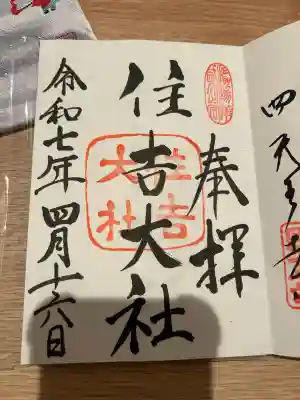 奉拝
住吉大社
住吉
大社
令和七年四月十六日
四天王寺